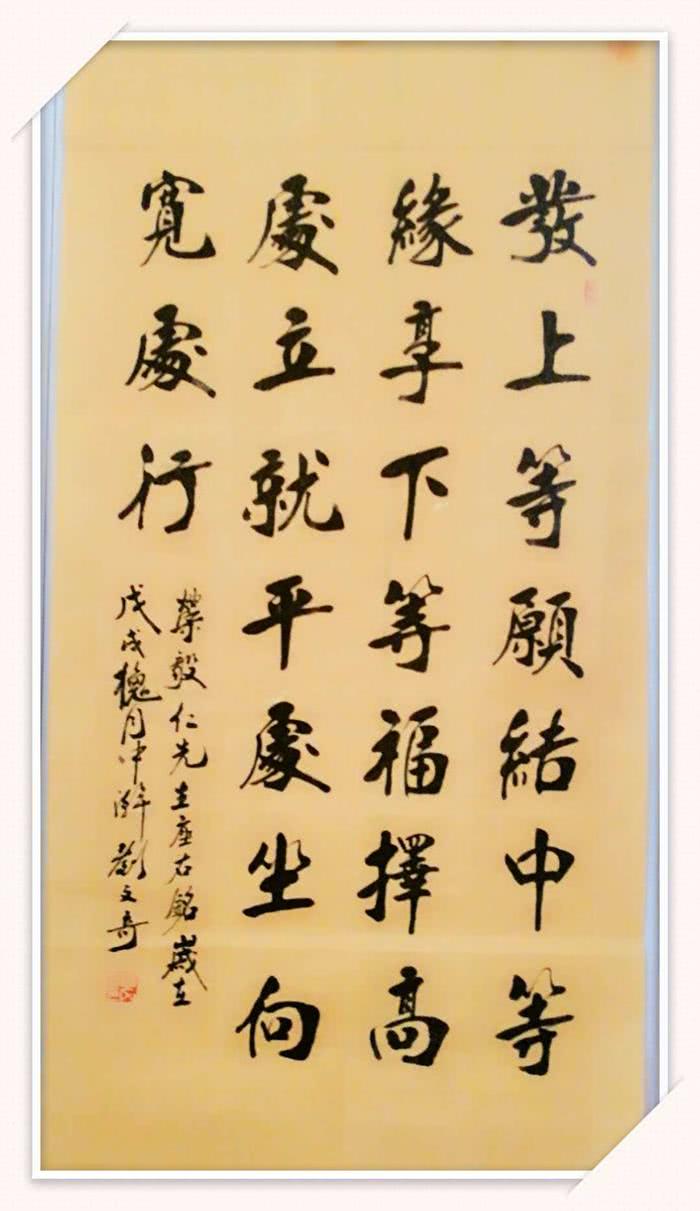 發上等願結中等
緣享下等福擇高
處立就平處坐向
寬處行
榮毅仁先生座右銘歲在
戊戌槐月中澣劉文奇